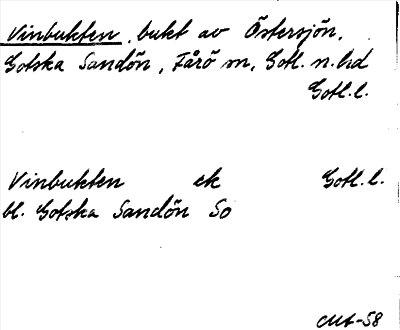 Vinbukten, bukt av Östersjön,
Gotska Sandön, Fårö sn, Gotl. n. hd
Gotl. l.
Vinbukten ek Gotl. l.
bl. Gotska Sandön So
-58